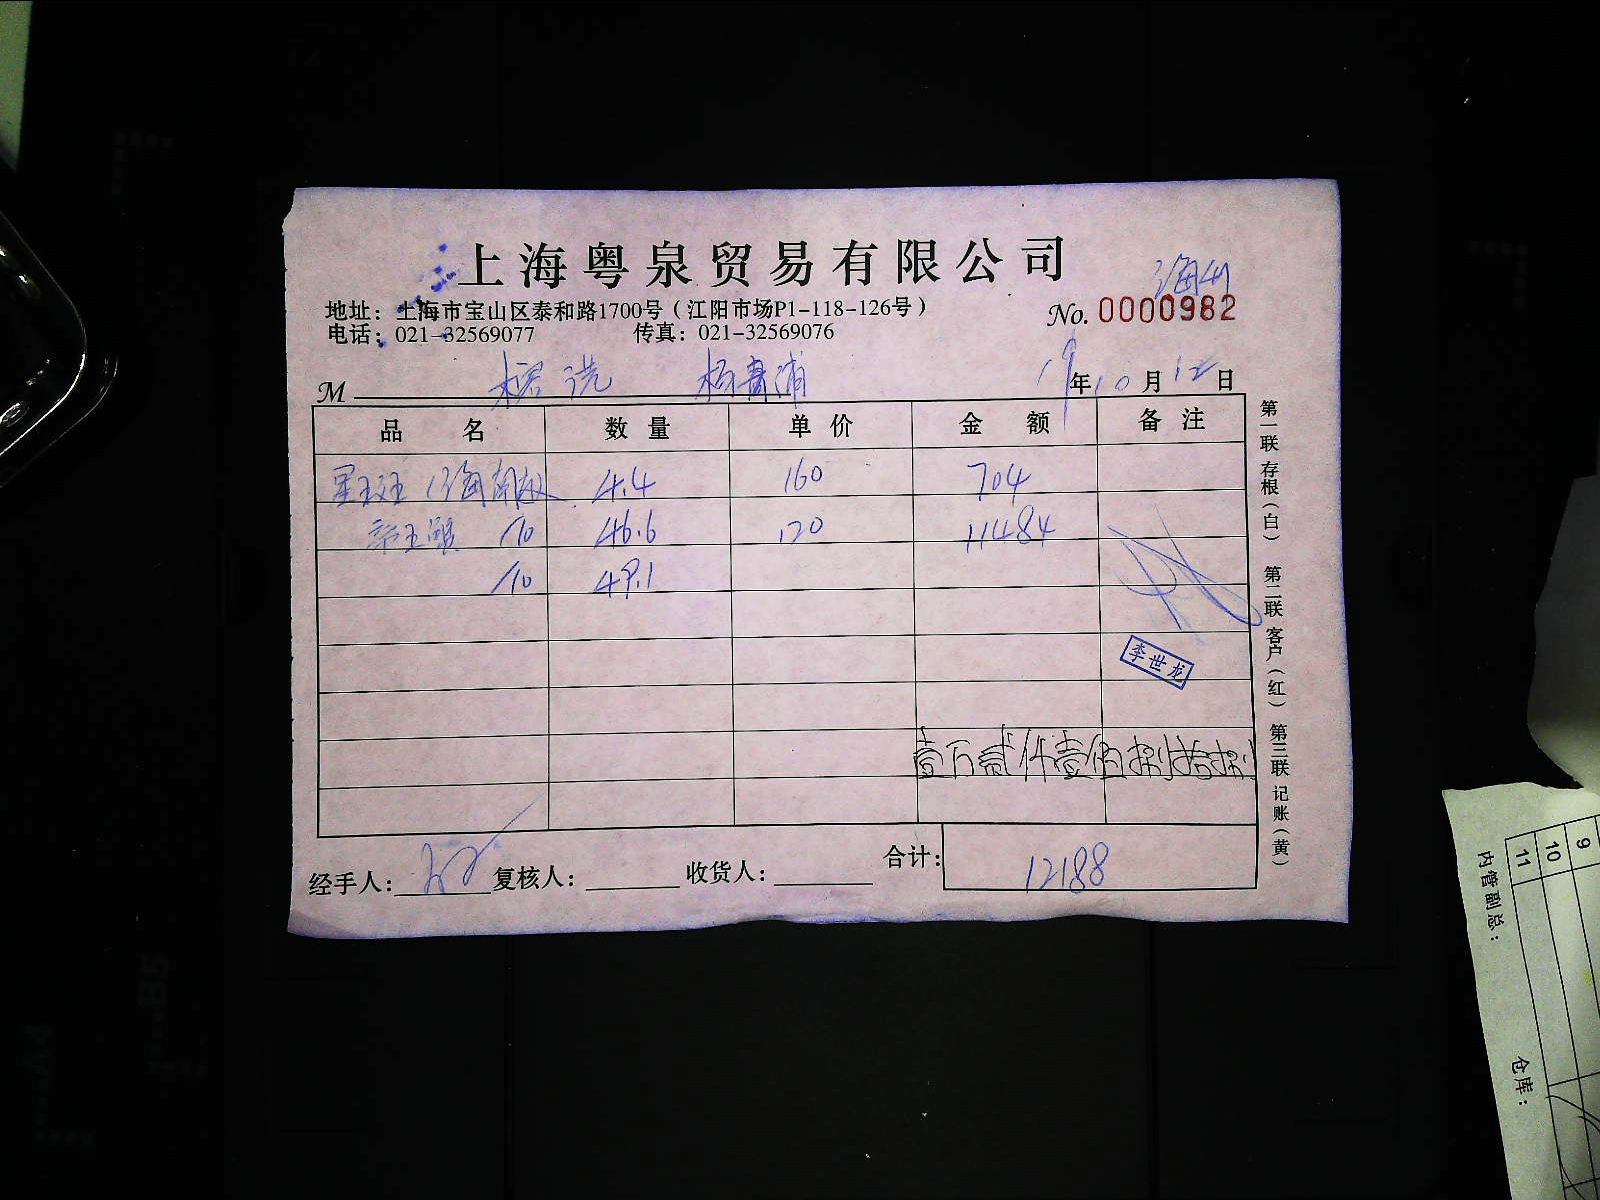 上海粤泉贸易有限公司
地址：上海市宝山区泰和路1700号（江阳市场P1-118-126号）
No. 0000982
电话：021-32569077 传真：021-32569076
M 19年10月12日
品名 数量 单价 金额 备注
4.4 160 704
帝王 /10 46.6 120 11484
/10 49.1
李世龙
壹万贰仟壹佰捌拾捌
经手人： 复核人： 收货人： 合计：12188
第一联存根（白） 第二联客户（红） 第三联记账（黄）
9
10
11
内管副总：
仓库：